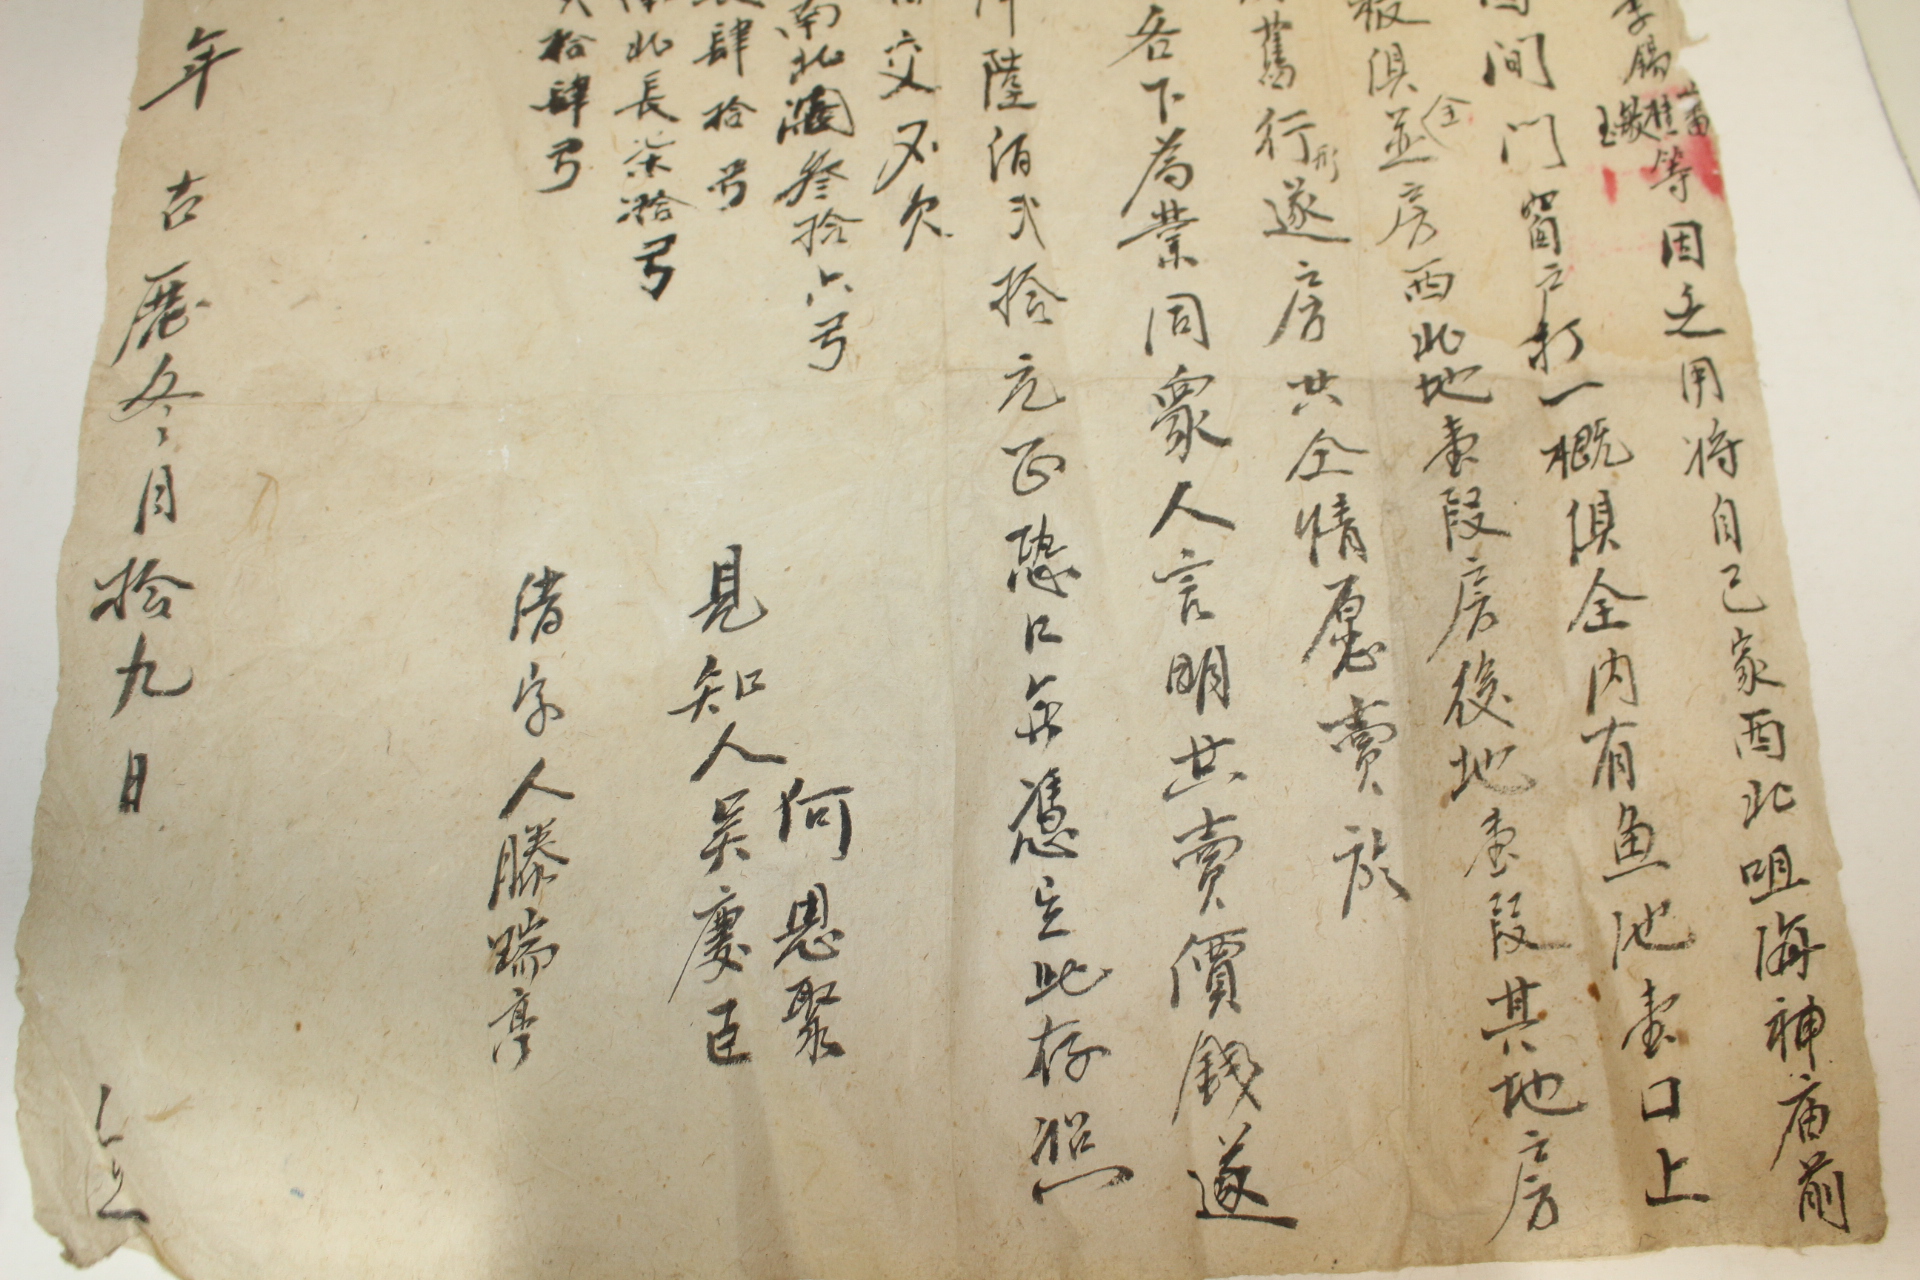 等因乏用将自己家西北咀海神庙前
间门窗户打一概俱全内有鱼池壹口上
板俱並全房西北地壹段房後地壹段其地房
舊行形遂房共仝情愿賣於
名下為業同衆人言明共賣價錢遂
陸佰弍拾元正恐口无憑立此存照
交不欠
南北濶叁拾六弓
肆拾弓
北長柒拾弓
拾肆弓
何恩聚
見知人吴慶臣
清字人滕瑞亭
年古曆冬月拾九日立